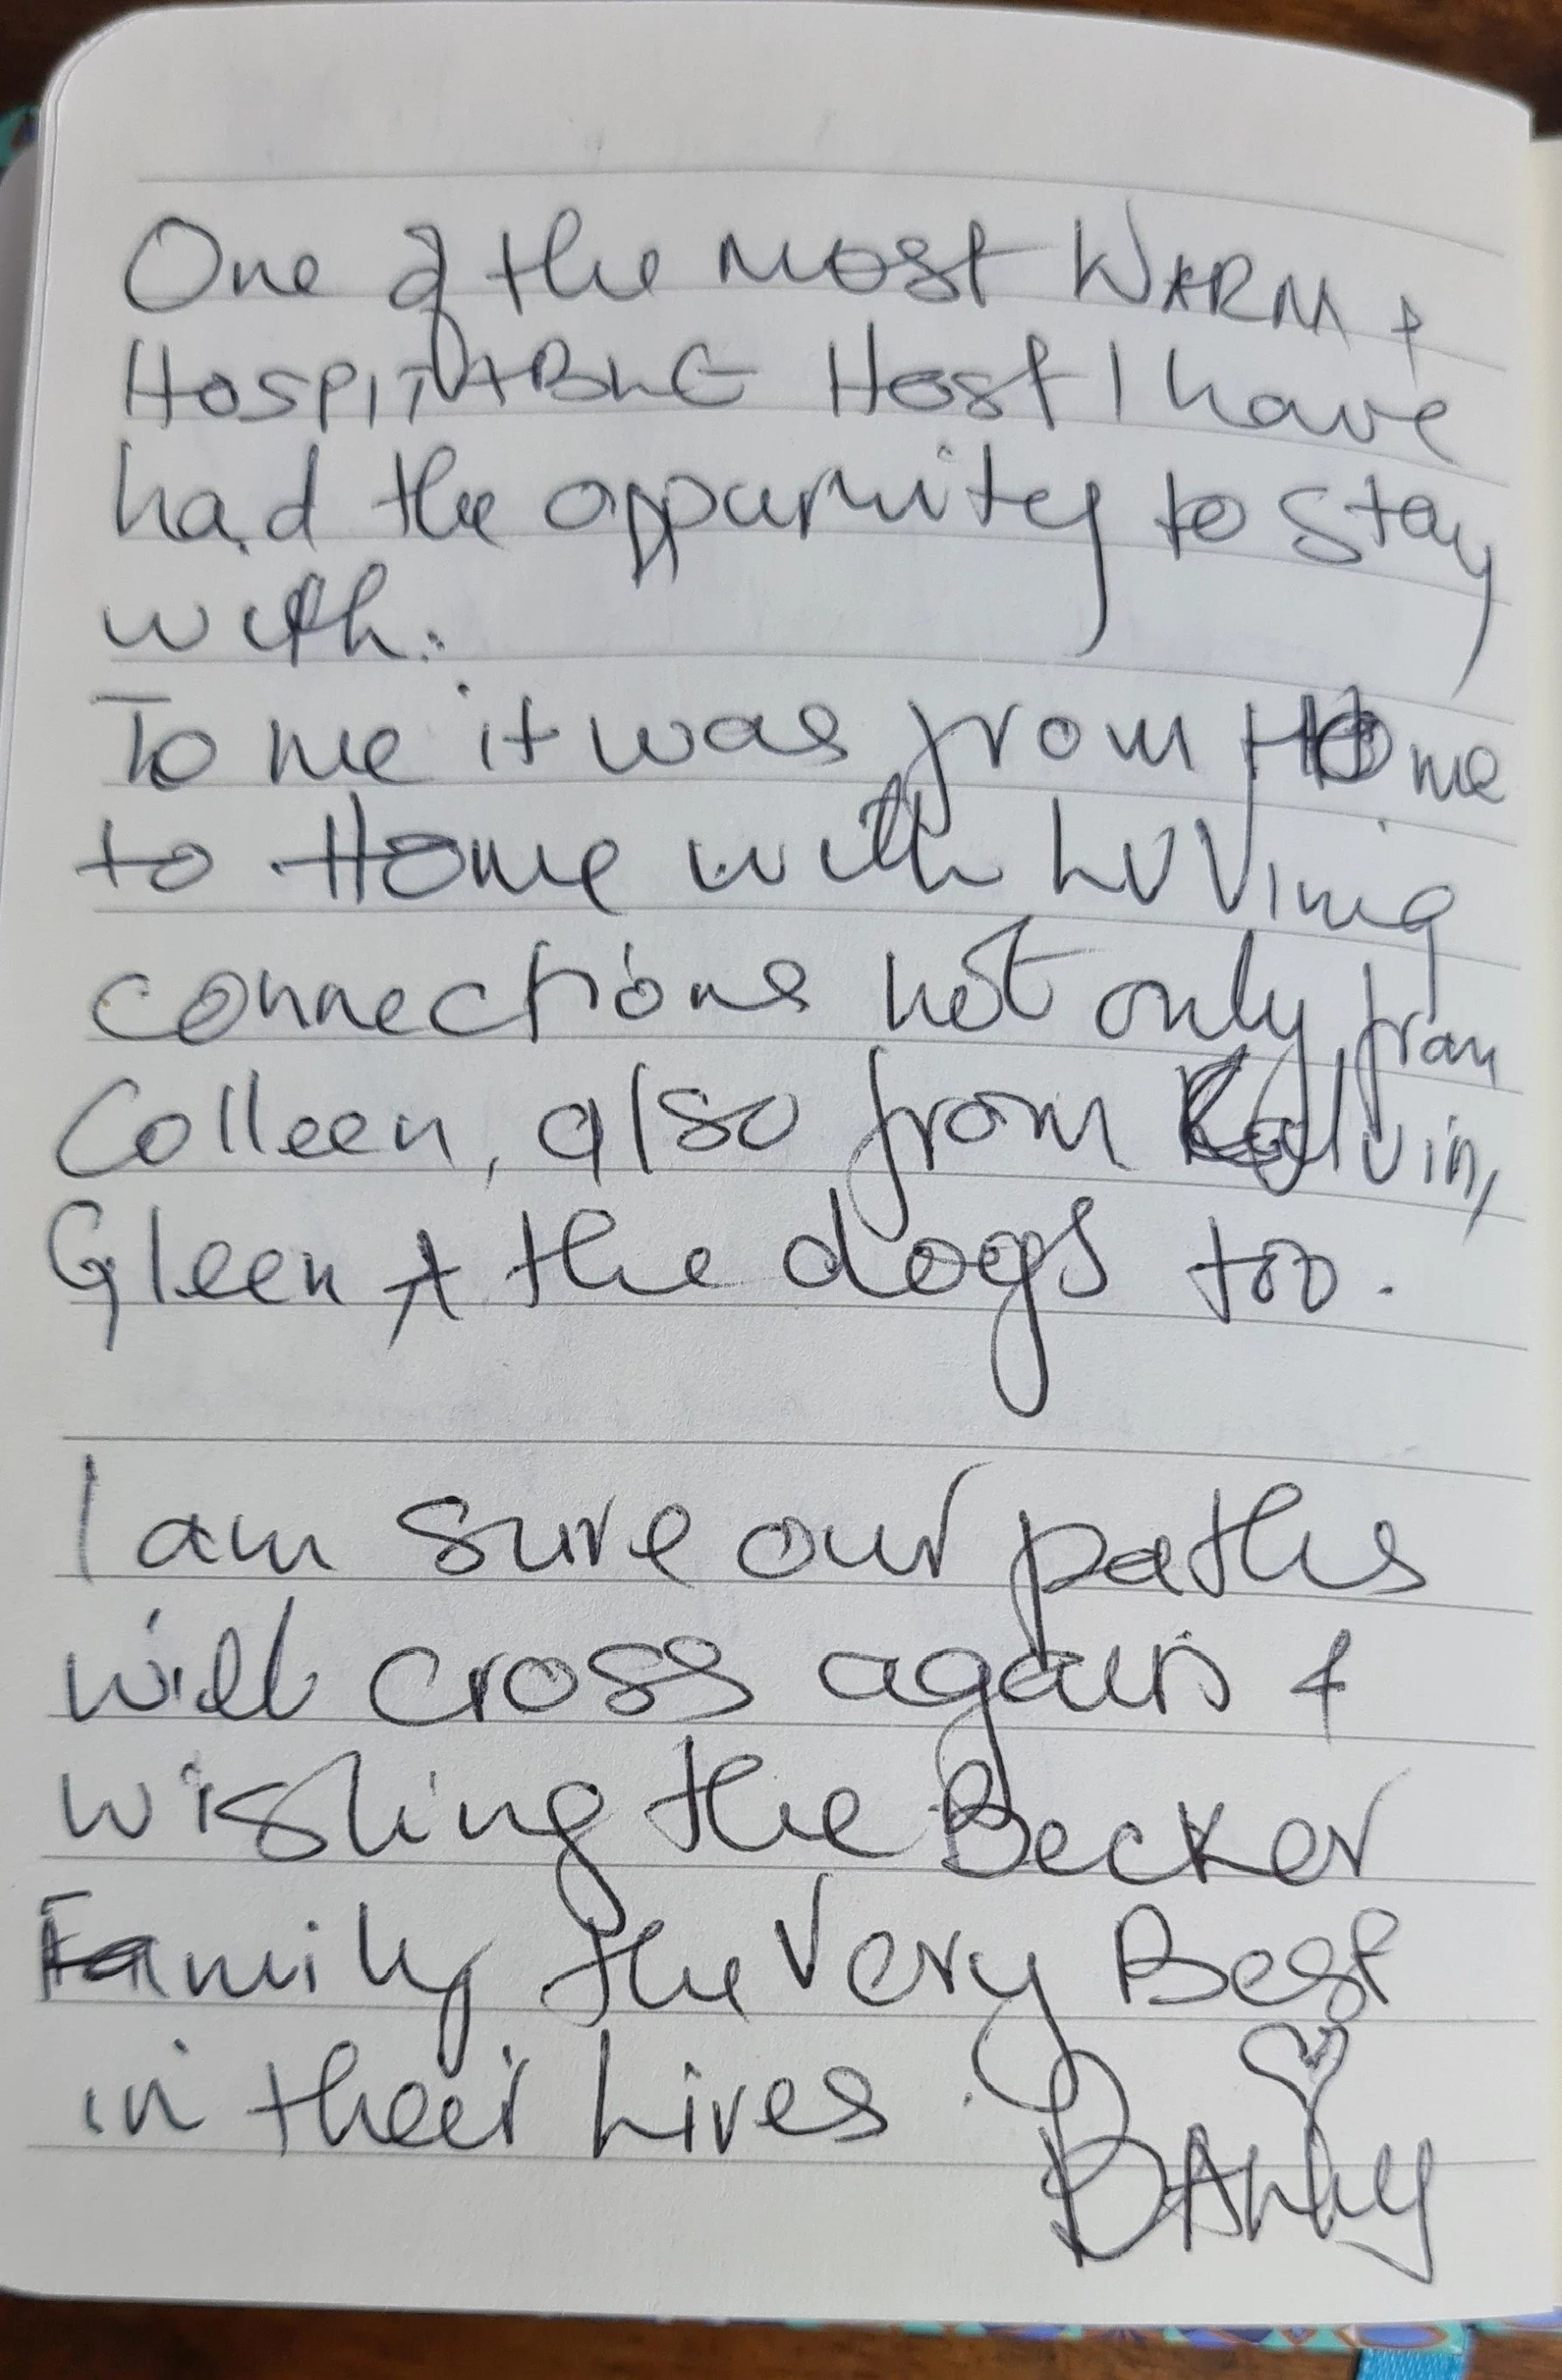 One of the most WARM +
HOSPITABLE Host I have
had the oppurnity to stay
with.
To me it was from Home
to Home with LUVing
connections not only from
Colleen, also from Kelvin,
Gleen + the dogs too.
I am sure our paths
will cross again &
wishing the Becker
Family the Very Best
in their Lives.